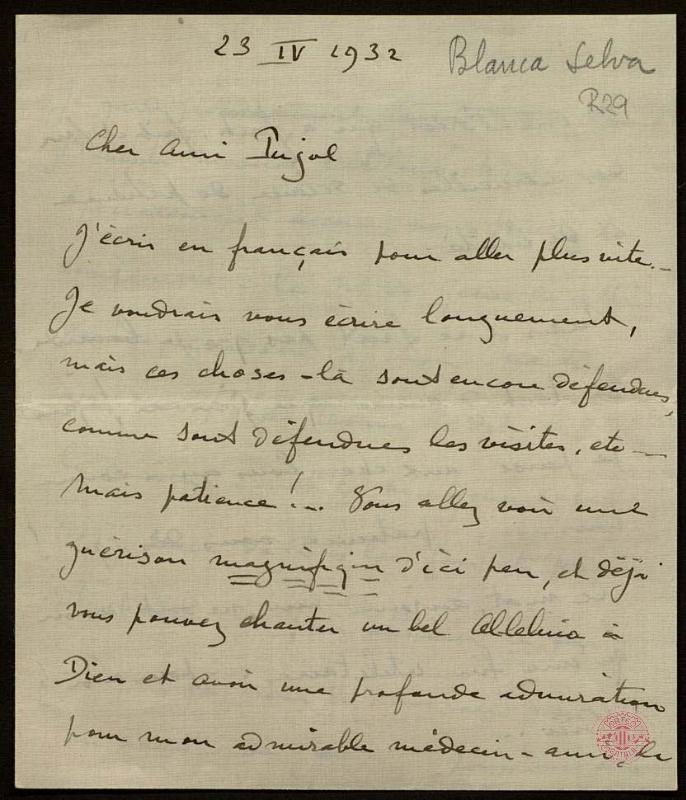 23 IV 1932
Blanca Selva
R29
Cher ami Pujol
J'écris en français pour aller plus vite. –
Je voudrais vous écrire longuement,
mais ces choses-là sont encore défendues,
comme sont défendues les visites, etc —
Mais patience!... Vous allez voir une
guérison magnifique d'ici peu, et déjà
vous pouvez chanter un bel Alleluia à
Dieu et avoir une profonde admiration
pour mon admirable médecin-ami, le